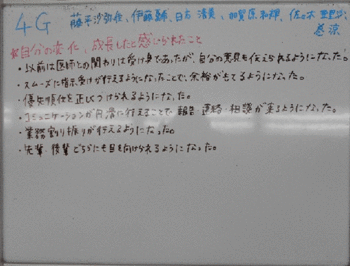 4G 藤平沙弥佳、伊藤 、白石 清美、加賀原和輝、佐々木
☆自分の変化、成長したと感じられたこと
・以前は医師との関わりは受け身であったが、自分の意見も伝えられるようになった。
・スムーズに指示受けが行えるようになったことで、余裕がもてるようになった。
・優先順位を正しくつけられるようになった。
・コミュニケーションが円滑に行えることで報告・連絡・相談が出来るようになった。
・業務割り振りが行えるようになった。
・先輩・後輩どちらにも目を向けられるようになった。